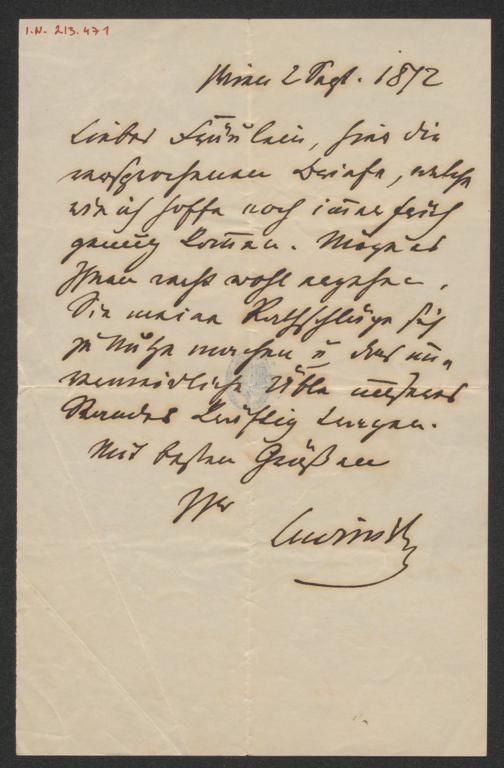 I.N. 213.471
Wien 2 Sept. 1872
Liebes Fräulein, hier die
versprochenen Briefe, welche
wie ich hoffe noch immer früh
genug kommen. Möge es
Ihnen recht wohl ergehen,
Sie meine Rathschläge sich
zu Nutze machen u das un-
vermeidliche Üble unseres
Standes kräftig tragen.
Mit besten Grüßen
Ihr
Lewinsky